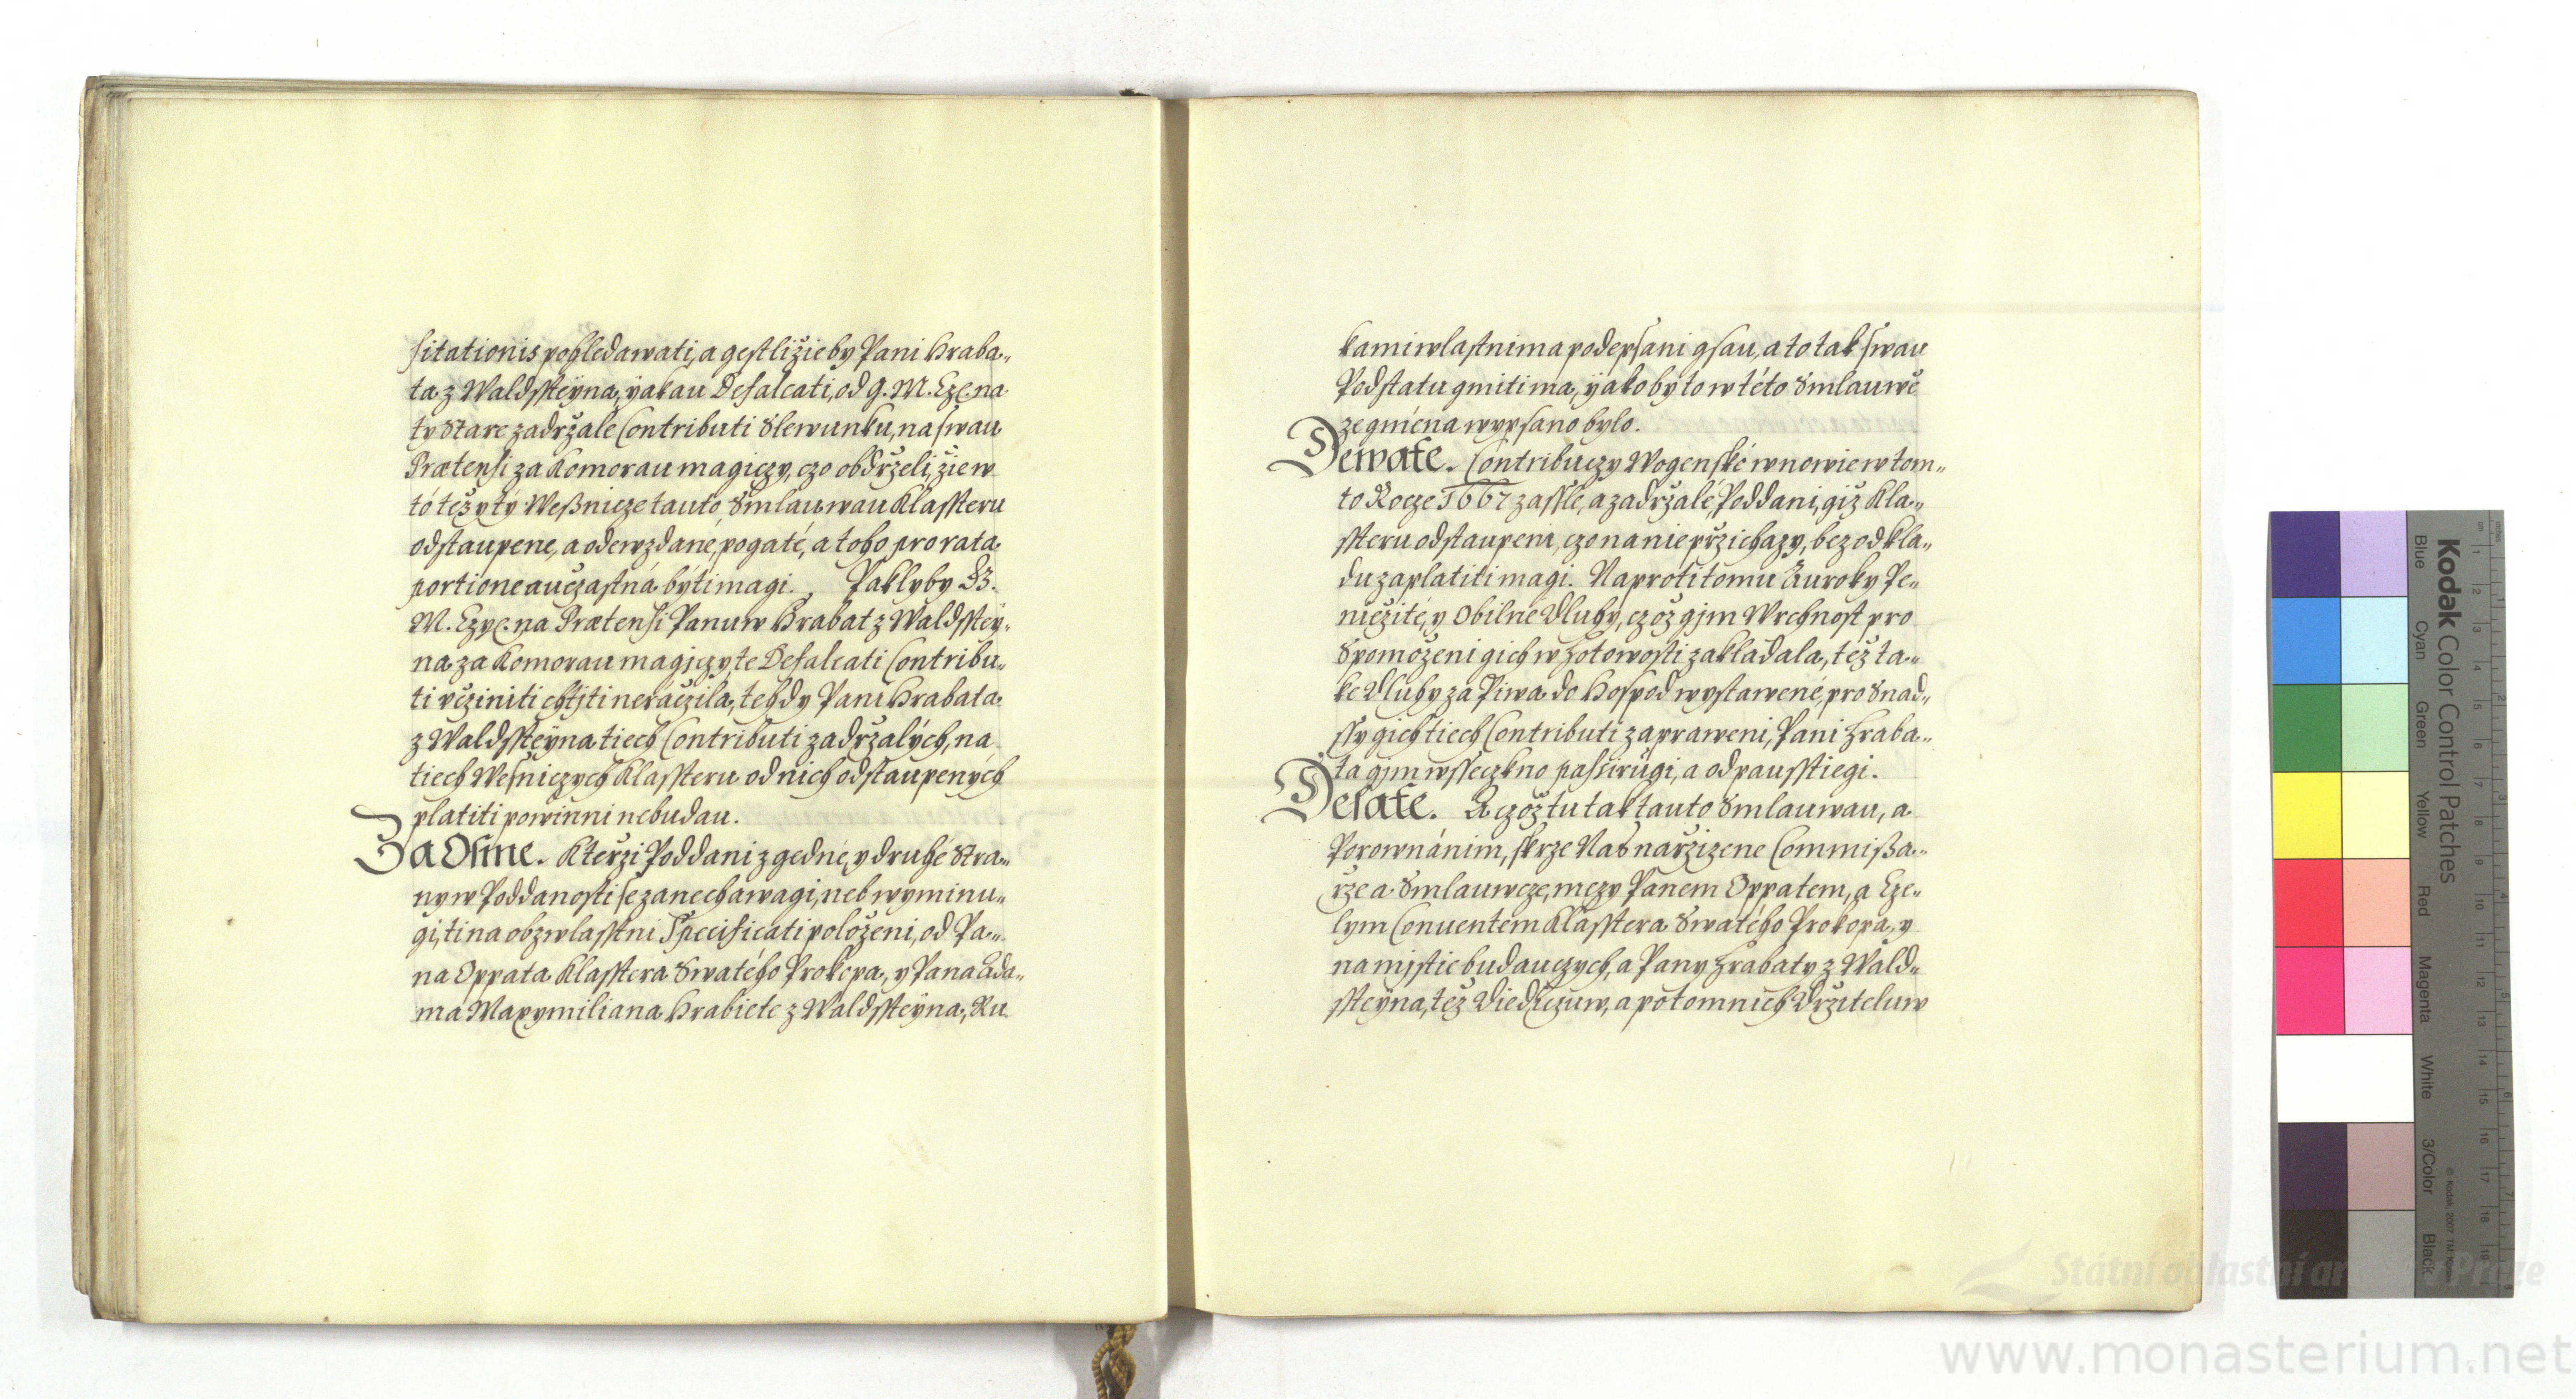 sitationis pohledawati, a gestližieby Pani Hraba„
ta z Waldssteyna, yakau Defalcati, od G. M. Cze. na
ty Stare zadržalé Contributi Slewunku, na swau
Prætensi za Komorau magiczy, czo obdrželi, žie w
tó též y ty Wesnicze tauto Smlauwau Klassteru
odstaupene, a odewzdané, pogaté, a toho pro rata
portione auczastná býti magi. Paklyby G.
M. Czyc. na Prætensi Panuw Hrabat z Waldsstey„
na za Komorau magiczy, te Defalcati Contribu„
ti vcziniti chtjti neráczila, tehdy Pani Hrabata
z Waldssteyna tiech Contributi zadržalých, na
tiech Wesniczych Klassteru od nich odstaupených
platiti powinni nebudau.
Za Osme. Kterži Poddani z gedné, y druhé Stra„
ny w Poddanosti se zanechawagi, neb wyminu„
gi, ti na obzwlasstni Specificati položeni, od Pa„
na Oppata Klasstera Swatého Prokopa, y Pana Ada„
ma Maxymiliana Hrabiete z Waldssteyna, Ru
kami wlastnima podepsani gsau, a to tak swau
Podstatu gmiti ma, yako by to w této Smlauwě
ze gména wypsano bylo.
Dewate. Contribuczy Wogenské w nowie w tom„
to Rocze 1667 zassle, a zadržalé, Poddani, giž Kla„
ssteru odstaupeni, czo na nie pržichazy, bez odkla„
du zaplatiti magi. Naproti tomu Auroky Pe„
niežité, y Obilné Dluhy, czož gjm Wrchnost pro
Spomoženi gich w hotowosti zakladala, též ta„
ke Dluhy za Piwa do Hospod wystawené, pro Snad„
ssy gich tiech Contributi zaprawenj, Pani Hraba„
ta gjm wsseczkno passirugi, a odpausstiegi.
Desate. A czož tu tak tauto Smlauwau, a
Porownánim, skrze Nás naržizene Commissa„
rže a Smlauwcze, mezy Panem Oppatem, a Cze„
lym Conuentem Klasstera Swatého Prokopa, y
na mjstie budauczych, a Pany Hrabaty z Wald„
ssteyna, též Diediczuw, a potomnich Držiteluw
Kodak Color Control Patches
Blue Cyan Green Yellow Red Magenta White 3/Color Black
© Kodak, 2007 TM: Kodak
Státní oblastní archiv v Praze
www.monasterium.net